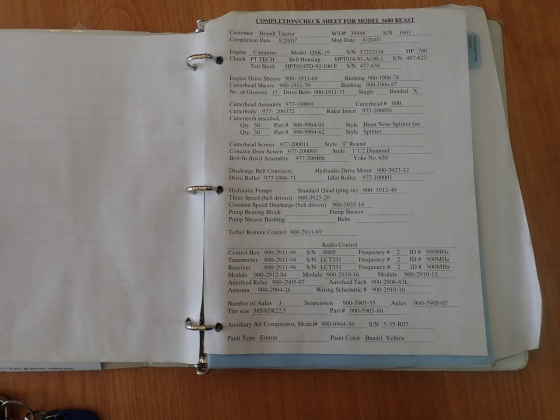 COMPLETION/CHECK SHEET FOR MODEL 3680 BEAST
Customer Brandt Tractor W/O# 39948 S/N 1661
Completion Date 8/20/07 Ship Date 8/20/07
Engine Cummins Model QSK-19 S/N 37222116 HP 700
Clutch PT TECH Bell Housing HPT014-01-A100-1 S/N 407-622
Tail Stock HPT014TD-92-100 F S/N 477-638
Engine Drive Sheave 900-1911-69 Bushing 900-1908-78
Cutterhead Sheave 900-1911-70 Bushing 900-1906-87
No. of Grooves 15 Drive Belts 900-1911-71 Single Banded X
Cutterhead Assembly 977-100091 Cutterhead # 800
Cutterbody 977-200372 Raker Insert 977-100856
Cutterteeth installed,
Qty. 30 Part # 900-9904-95 Style Blunt Nose Splitter Int
Qty. 30 Part # 900-9904-62 Style Splitter
Cutterhead Screen 977-200011 Style 3" Round
Concave Door Screen 977-200093 Style 1 1/2 Diamond
Bolt-In Anvil Assembly 977-200406 Yoke No. 638
Discharge Belt Conveyor, Hydraulic Drive Motor 900-3923-12
Drive Roller 977-1006-71 Idler Roller 977-100001
Hydraulic Pumps Standard Quad (plug-in) 900-3912-49
Three Speed (belt driven) 900-3925-20
Constant Speed Discharge (belt driven) 900-3935-16
Pump Bearing Block Pump Sheave
Pump Sheave Bushing Belts
Tether Remote Control 900-2911-97
Radio Control
Control Box 900-2911-96 S/N 8885 Frequency # 2 ID # 900MHz
Transmitter 900-2911-98 S/N LCT331 Frequency # 2 ID # 900MHz
Receiver 900-2911-96 S/N LCT331 Frequency # 2 ID # 900MHz
Module 900-2912-84 Module 900-2910-16 Module 900-2910-13
Autofeed Relay 900-2905-07 Autofeed Tach 900-2906-83L
Antenna 900-2904-26 Wiring Schematic # 900-2910-16
Number of Axles 3 Suspension 900-5905-55 Axles 900-5905-07
Tire size 385/65R22.5 Part # 900-5905-80
Auxiliary Air Compressor, Model# 900-9904-36 S/N 5-35-R07
Paint Type Emron Paint Color Bandit Yellow